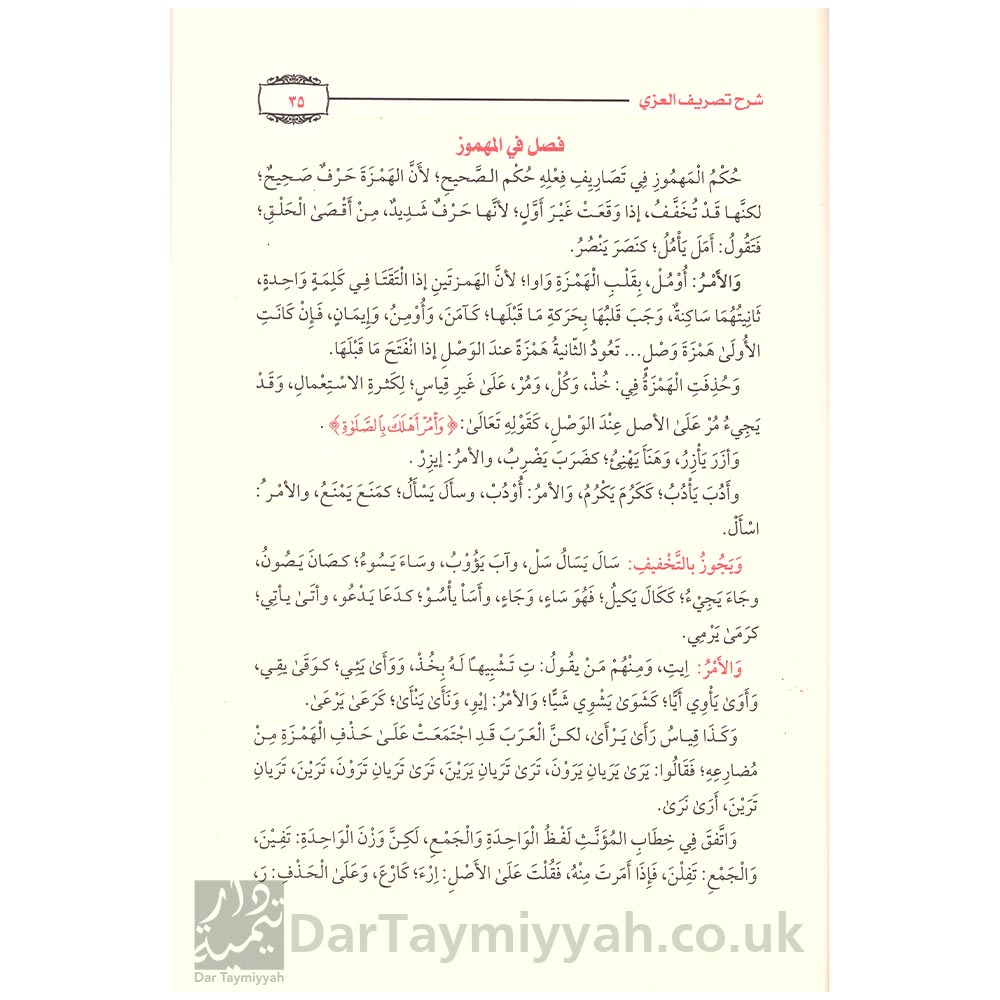 شرح تصريف العزي
٣٥
فصل في المهموز
حُكْمُ الْمَهمُوزِ فِي تَصَارِيفِ فِعْلِهِ حُكْم الصَّحيحِ؛ لأَنَّ الهَمْزَةَ حَرْفٌ صَحِيحٌ؛
لكنَّها قَدْ تُخَفَّفُ، إذا وَقَعَتْ غَيْرَ أَوَّلٍ؛ لأنَّها حَرْفٌ شَدِيدٌ، مِنْ أَقْصَىٰ الْحَلْقِ؛
فَتَقُولُ: أَمَلَ يَأْمُلُ؛ كنَصَرَ يَنْصُرُ.
وَالأَمْرُ: أُوْمُلْ، بِقَلْبِ الْهَمْزَةِ وَاوا؛ لأنَّ الهَمزتَينِ إذا الْتَقَتَا فِي كَلِمَةٍ وَاحِدةٍ،
ثَانِيتُهُمَا سَاكِنةٌ، وَجَبَ قَلبُهَا بِحَركةِ مَا قَبْلَها؛ كَآمَنَ، وَأُوْمِنُ، وَإِيمَانٍ، فَإِنْ كَانَتِ
الأُولَىٰ هَمْزَةَ وَصْلٍ... تَعُودُ الثّانيةُ هَمْزَةً عندَ الوَصْلِ إذا انْفَتَحَ مَا قَبْلَهَا.
وَحُذِفَتِ الْهَمْزَةُ فِي: خُذْ، وَكُلْ، وَمُرْ، عَلَىٰ غَيرِ قِياسٍ؛ لِكَثرةِ الاسْتِعْمالِ، وَقَدْ
يَجِيءُ مُرْ عَلَىٰ الأصل عِنْدَ الوَصْلِ، كَقَوْلِهِ تَعَالَىٰ: ﴿وَأْمُرْ أَهْلَكَ بِٱلصَّلَوٰةِ﴾ .
وَأزَرَ يَأْزِرُ، وَهَنَأَ يَهْنِئُ؛ كضَرَبَ يَضْرِبُ، والأمرُ: إيزِرْ .
وأَدُبَ يَأْدُبُ؛ كَكَرُمَ يَكْرُمُ، وَالأمرُ: أُوْدُبْ، وسأَلَ يَسْأَلُ؛ كمَنَعَ يَمْنَعُ، والأمْرُ:
اسْأَلْ.
وَيَجُوزُ بالتَّخْفيفِ: سَالَ يَسَالُ سَلْ، وآبَ يَؤُوْبُ، وسَاءَ يَسُوءُ؛ كصَانَ يَصُونُ،
وجَاءَ يَجِيْءُ؛ كَكَالَ يَكيلُ؛ فَهُوَ سَاءٍ، وَجَاءٍ، وأَسَا يأْسُوْ؛ كدَعَا يَدْعُو، وأتَىٰ يأتِي؛
كرَمَىٰ يَرْمِي.
وَالأَمْرُ: اِيتِ، وَمِنْهُمْ مَنْ يقُولُ: تِ تَشْبِيهاً لَهُ بِخُذْ، وَوَأَىٰ يَئِي؛ كوَقَىٰ يقِي،
وَأَوَىٰ يَأْوِي أَيًّا؛ كَشَوَىٰ يَشْوِي شَيًّا؛ وَالأمْرُ: إيْوِ، وَنَأَىٰ يَنْأَىٰ؛ كَرَعَىٰ يَرْعَىٰ.
وَكَذَا قِياسُ رَأَىٰ يَرْأَىٰ، لكنَّ العَرَبَ قَدِ اجْتَمَعَتْ عَلَىٰ حَذْفِ الْهَمْزَةِ مِنْ
مُضارِعِهِ؛ فَقَالُوا: يَرَىٰ يَرَيانِ يَرَوْنَ، تَرَىٰ تَرَيانِ يَرَيْنَ، تَرَىٰ تَرَيانِ تَرَوْنَ، تَرَيْنَ، تَرَيانِ
تَرَيْنَ، أَرَىٰ نَرَىٰ.
وَاتَّفقَ فِي خِطَابِ المُؤَنَّثِ لَفْظُ الْوَاحِدَةِ وَالْجَمْعِ، لَكِنَّ وَزْنَ الْوَاحِدَةِ: تَفِيْنَ،
وَالْجَمْعِ: تَفِلْنَ، فَإِذَا أَمَرتَ مِنْهُ، فَقُلْتَ عَلَىٰ الأَصْلِ: اِرْءَ؛ كَارْعَ، وَعَلَىٰ الْحَذْفِ: رَ،
دار تيمية
Dar Taymiyyah
DarTaymiyyah.co.uk